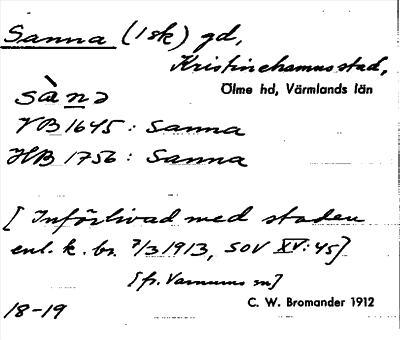 Sanna (1 sk) gd,
Kristinehamns stad,
Ölme hd, Värmlands län
sàn̲ə
VB 1645: Sanna
HB 1756: Sanna
[Införlivad med staden
enl. k. br. 7/3 1913, SOV XV:45]
[fr. Varnums sn]
18-19
C. W. Bromander 1912